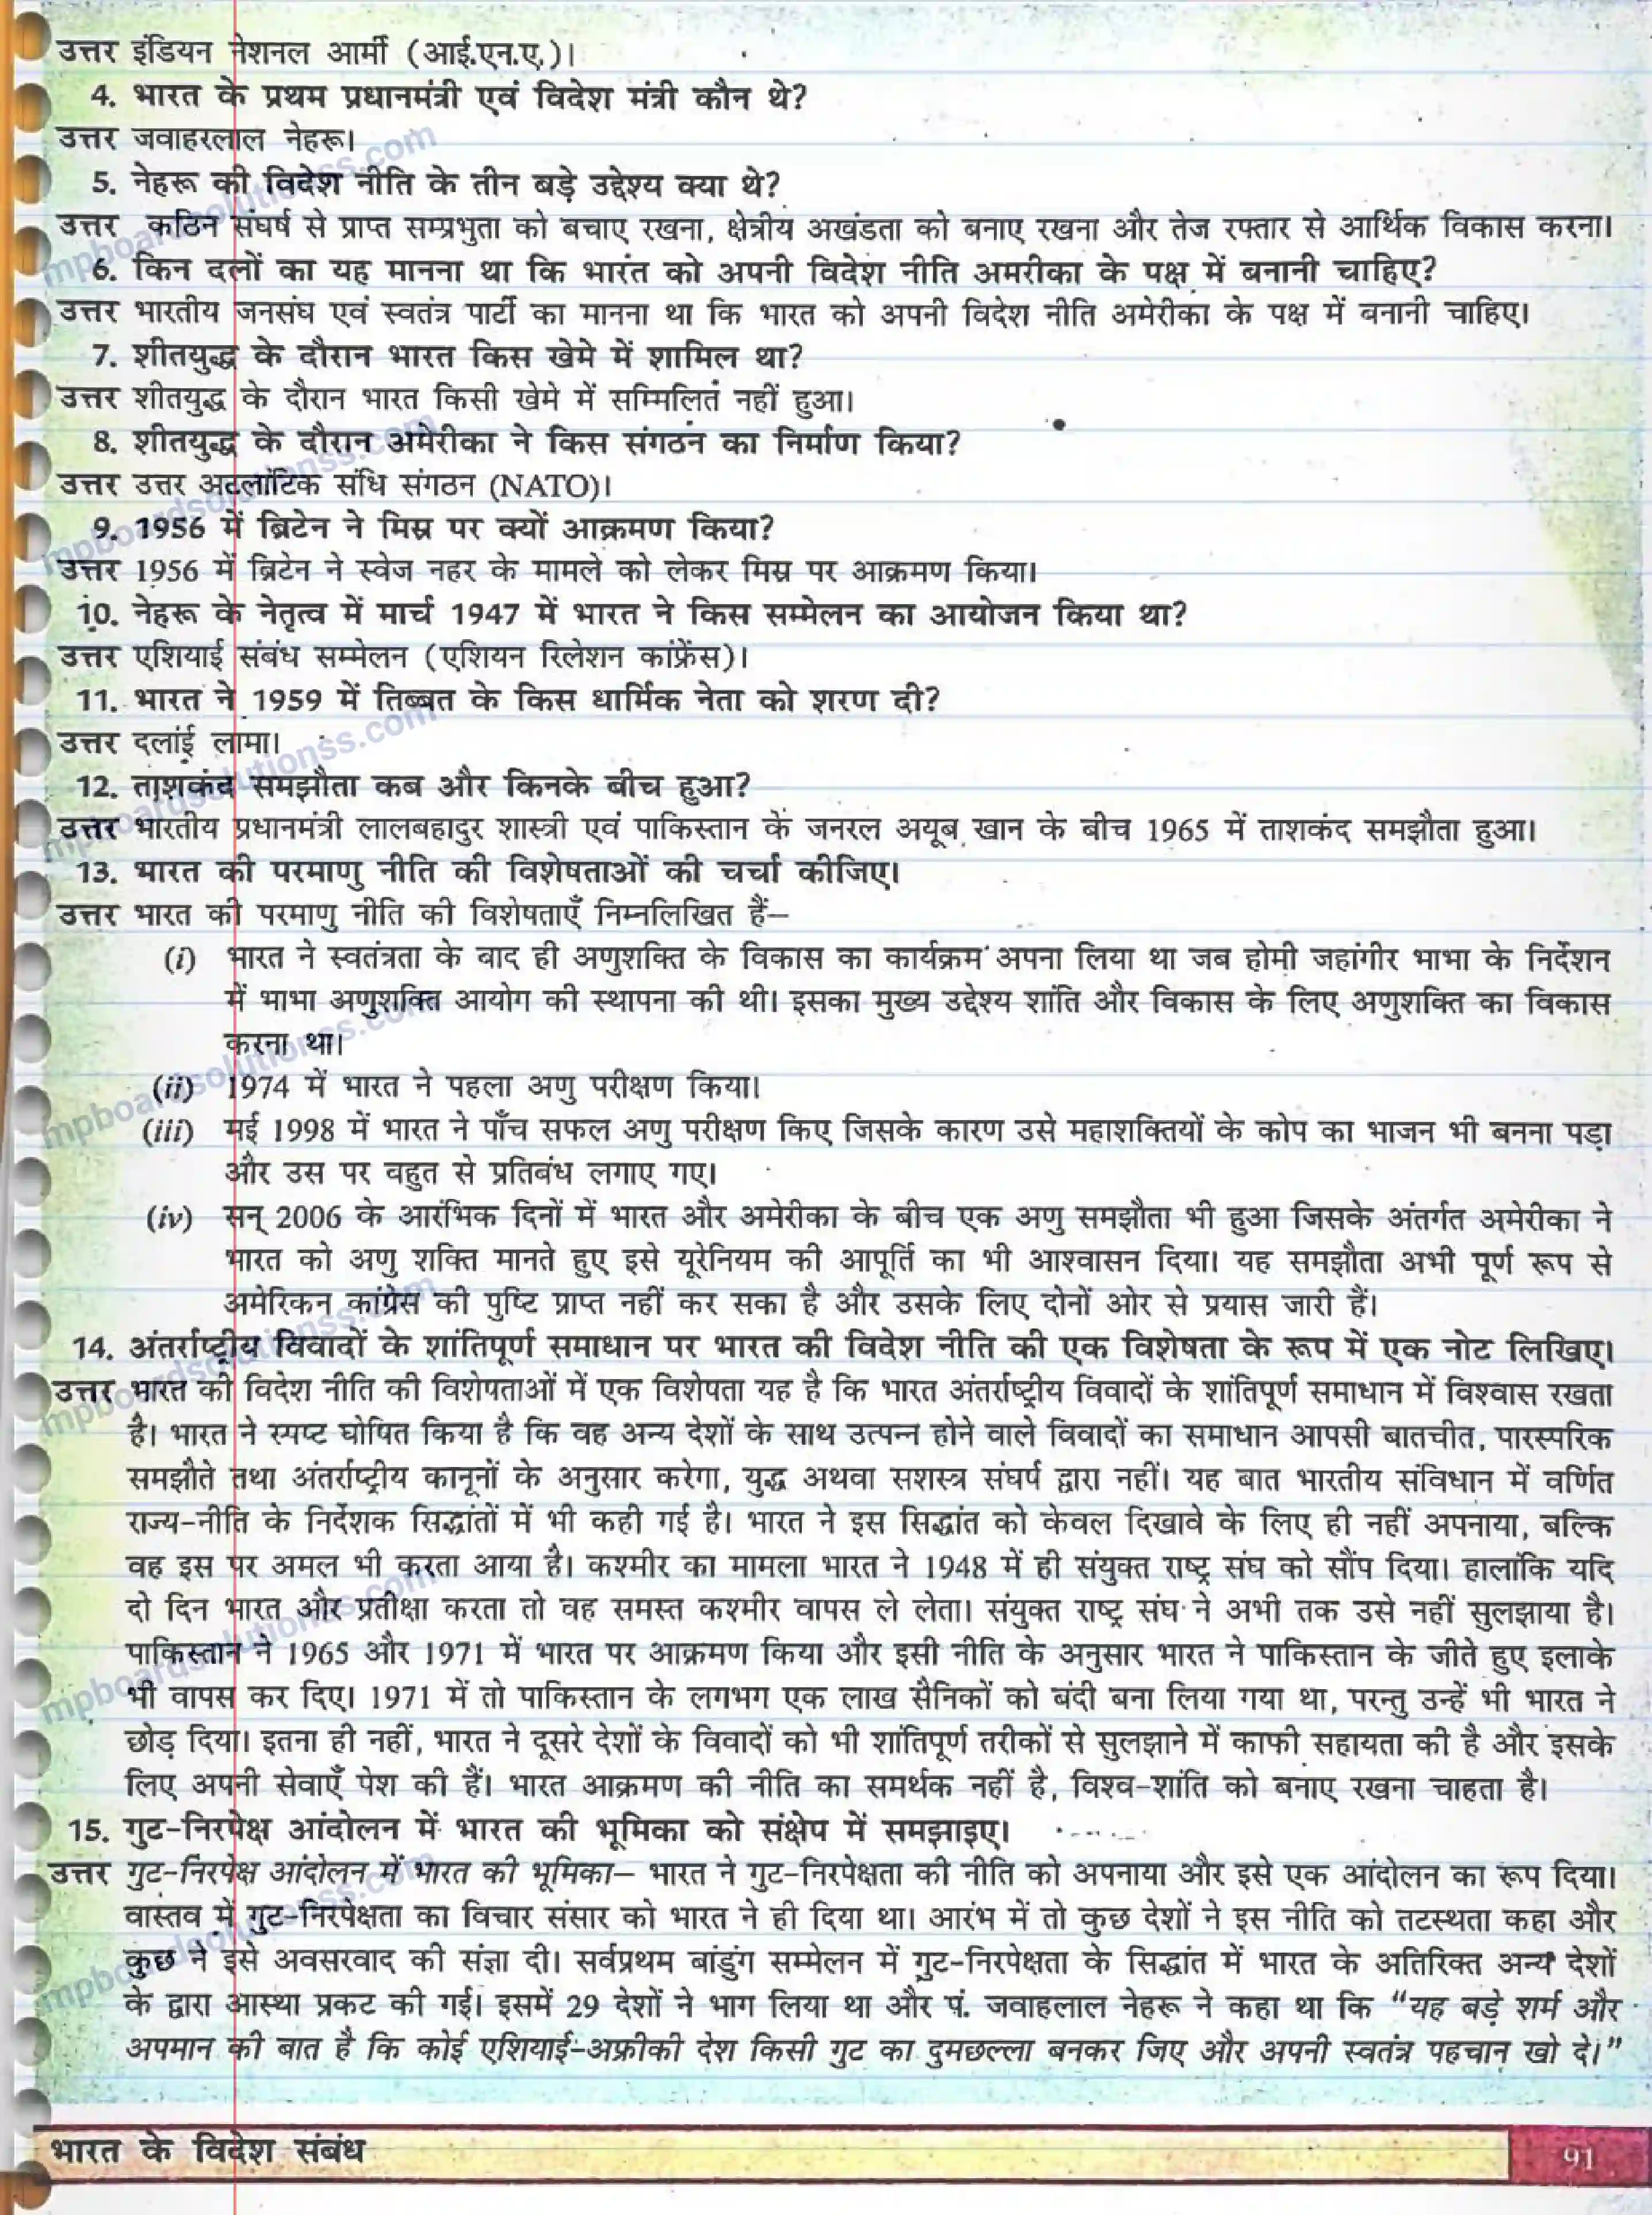 उत्तर इंडियन नेशनल आर्मी (आई.एन.ए.)।
4. भारत के प्रथम प्रधानमंत्री एवं विदेश मंत्री कौन थे?
उत्तर जवाहरलाल नेहरू।
5. नेहरू की विदेश नीति के तीन बड़े उद्देश्य क्या थे?
उत्तर कठिन संघर्ष से प्राप्त सम्प्रभुता को बचाए रखना, क्षेत्रीय अखंडता को बनाए रखना और तेज रफ्तार से आर्थिक विकास करना।
6. किन दलों का यह मानना था कि भारत को अपनी विदेश नीति अमरीका के पक्ष में बनानी चाहिए?
उत्तर भारतीय जनसंघ एवं स्वतंत्र पार्टी का मानना था कि भारत को अपनी विदेश नीति अमेरीका के पक्ष में बनानी चाहिए।
7. शीतयुद्ध के दौरान भारत किस खेमे में शामिल था?
उत्तर शीतयुद्ध के दौरान भारत किसी खेमे में सम्मिलित नहीं हुआ।
8. शीतयुद्ध के दौरान अमेरीका ने किस संगठन का निर्माण किया?
उत्तर उत्तर अटलांटिक संधि संगठन (NATO)।
9. 1956 में ब्रिटेन ने मिस्र पर क्यों आक्रमण किया?
उत्तर 1956 में ब्रिटेन ने स्वेज नहर के मामले को लेकर मिस्र पर आक्रमण किया।
10. नेहरू के नेतृत्व में मार्च 1947 में भारत ने किस सम्मेलन का आयोजन किया था?
उत्तर एशियाई संबंध सम्मेलन (एशियन रिलेशन कांफ्रेंस)।
11. भारत ने 1959 में तिब्बत के किस धार्मिक नेता को शरण दी?
उत्तर दलाई लामा।
12. ताशकंद समझौता कब और किनके बीच हुआ?
उत्तर भारतीय प्रधानमंत्री लालबहादुर शास्त्री एवं पाकिस्तान के जनरल अयूब खान के बीच 1965 में ताशकंद समझौता हुआ।
13. भारत की परमाणु नीति की विशेषताओं की चर्चा कीजिए।
उत्तर भारत की परमाणु नीति की विशेषताएँ निम्नलिखित हैं–
(i) भारत ने स्वतंत्रता के बाद ही अणुशक्ति के विकास का कार्यक्रम अपना लिया था जब होमी जहांगीर भाभा के निर्देशन
में भाभा अणुशक्ति आयोग की स्थापना की थी। इसका मुख्य उद्देश्य शांति और विकास के लिए अणुशक्ति का विकास
करना था।
(ii) 1974 में भारत ने पहला अणु परीक्षण किया।
(iii) मई 1998 में भारत ने पाँच सफल अणु परीक्षण किए जिसके कारण उसे महाशक्तियों के कोप का भाजन भी बनना पड़ा
और उस पर वहुत से प्रतिबंध लगाए गए।
(iv) सन् 2006 के आरंभिक दिनों में भारत और अमेरीका के बीच एक अणु समझौता भी हुआ जिसके अंतर्गत अमेरीका ने
भारत को अणु शक्ति मानते हुए इसे यूरेनियम की आपूर्ति का भी आश्वासन दिया। यह समझौता अभी पूर्ण रूप से
अमेरिकन कांग्रेस की पुष्टि प्राप्त नहीं कर सका है और उसके लिए दोनों ओर से प्रयास जारी हैं।
14. अंतर्राष्ट्रीय विवादों के शांतिपूर्ण समाधान पर भारत की विदेश नीति की एक विशेषता के रूप में एक नोट लिखिए।
उत्तर भारत की विदेश नीति की विशेषताओं में एक विशेषता यह है कि भारत अंतर्राष्ट्रीय विवादों के शांतिपूर्ण समाधान में विश्वास रखता
है। भारत ने स्पष्ट घोषित किया है कि वह अन्य देशों के साथ उत्पन्न होने वाले विवादों का समाधान आपसी बातचीत, पारस्परिक
समझौते तथा अंतर्राष्ट्रीय कानूनों के अनुसार करेगा, युद्ध अथवा सशस्त्र संघर्ष द्वारा नहीं। यह बात भारतीय संविधान में वर्णित
राज्य-नीति के निर्देशक सिद्धांतों में भी कही गई है। भारत ने इस सिद्धांत को केवल दिखावे के लिए ही नहीं अपनाया, बल्कि
वह इस पर अमल भी करता आया है। कश्मीर का मामला भारत ने 1948 में ही संयुक्त राष्ट्र संघ को सौंप दिया। हालांकि यदि
दो दिन भारत और प्रतीक्षा करता तो वह समस्त कश्मीर वापस ले लेता। संयुक्त राष्ट्र संघ ने अभी तक उसे नहीं सुलझाया है।
पाकिस्तान ने 1965 और 1971 में भारत पर आक्रमण किया और इसी नीति के अनुसार भारत ने पाकिस्तान के जीते हुए इलाके
भी वापस कर दिए। 1971 में तो पाकिस्तान के लगभग एक लाख सैनिकों को बंदी बना लिया गया था, परन्तु उन्हें भी भारत ने
छोड़ दिया। इतना ही नहीं, भारत ने दूसरे देशों के विवादों को भी शांतिपूर्ण तरीकों से सुलझाने में काफी सहायता की है और इसके
लिए अपनी सेवाएँ पेश की हैं। भारत आक्रमण की नीति का समर्थक नहीं है, विश्व-शांति को बनाए रखना चाहता है।
15. गुट-निरपेक्ष आंदोलन में भारत की भूमिका को संक्षेप में समझाइए।
उत्तर गुट-निरपेक्ष आंदोलन में भारत की भूमिका– भारत ने गुट-निरपेक्षता की नीति को अपनाया और इसे एक आंदोलन का रूप दिया।
वास्तव में गुट-निरपेक्षता का विचार संसार को भारत ने ही दिया था। आरंभ में तो कुछ देशों ने इस नीति को तटस्थता कहा और
कुछ ने इसे अवसरवाद की संज्ञा दी। सर्वप्रथम बांडुंग सम्मेलन में गुट-निरपेक्षता के सिद्धांत में भारत के अतिरिक्त अन्य देशों
के द्वारा आस्था प्रकट की गई। इसमें 29 देशों ने भाग लिया था और पं. जवाहलाल नेहरू ने कहा था कि “यह बड़े शर्म और
अपमान की बात है कि कोई एशियाई-अफ्रीकी देश किसी गुट का दुमछल्ला बनकर जिए और अपनी स्वतंत्र पहचान खो दे।”
भारत के विदेश संबंध
91
mpboardsolutionss.com
mpboardsolutionss.com
mpboardsolutionss.com
mpboardsolutionss.com
mpboardsolutionss.com
mpboardsolutionss.com
mpboardsolutionss.com